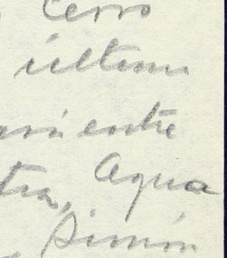 Cerro
última
entre
tra, Agua
Simón